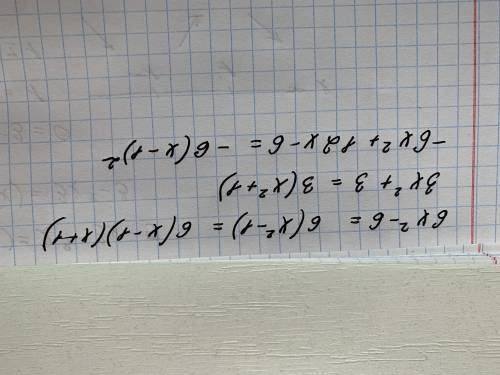 6x²-6 = 6(x²-1) = 6(x-1)(x+1)
3x²+3 = 3(x²+1)
-6x²+12x-6 = -6(x-1)²